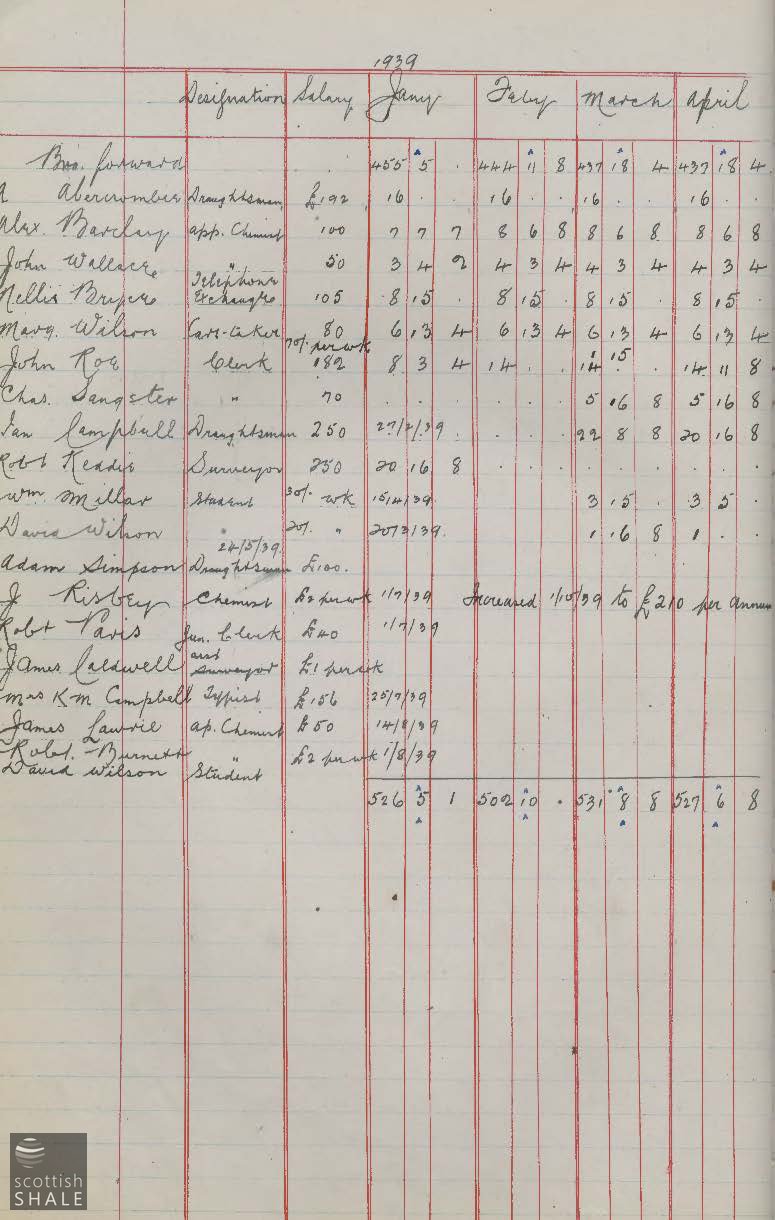 1939
Designation Salary Jany Feby March April
Bro. forward . . 455 5 . 444 11 8 437 18 4 437 18 4
A Abercrombie Draughtsman £192 16 . . 16 . . 16 . . 16 . .
Alex. Barclay app. Chemist 100 7 7 7 8 6 8 8 6 8 8 6 8
John Wallace " 50 3 4 2 4 3 4 4 3 4 4 3 4
Nellie Telephone Exchange 105 8 15 . 8 15 . 8 15 . 8 15 .
Marg. Wilson Care-taker 80 6 13 4 6 13 4 6 13 4 6 13 4
John Roe Clerk 70/- per wk 182 8 3 4 14 . . 14 . . 1 15 14 11 8
Chas. Sangster " 70 . . . . . . 5 16 8 5 16 8
Ian Campbell Draughtsman 250 27/2/39 . . . . 22 8 8 20 16 8
Robt Keddie Surveyor 250 20 16 8 . . . . . . . . .
Wm. Millar Student 30/- wk 15/4/39 . . 3 15 . 3 5 .
David Wilson " 20/- " 20/3/39. 1 6 8 1 . .
24/5/39.
Adam Simpson Draughtsman £100.
J Risbey Chemist £2 per wk 1/7/39 Increased 1/10/39 to £210 per annum
Robt Paris Jun. Clerk £40 1/7/39
James Caldwell asst surveyor £1 per wk
Mrs K M Campbell Typist £156 25/7/39
James Lawrie ap. Chemist £50 14/8/39
Robt. Burnett " £2 per wk 1/8/39
David Wilson Student
526 5 1 502 10 . 531 8 8 527 6 8
scottish
SHALE